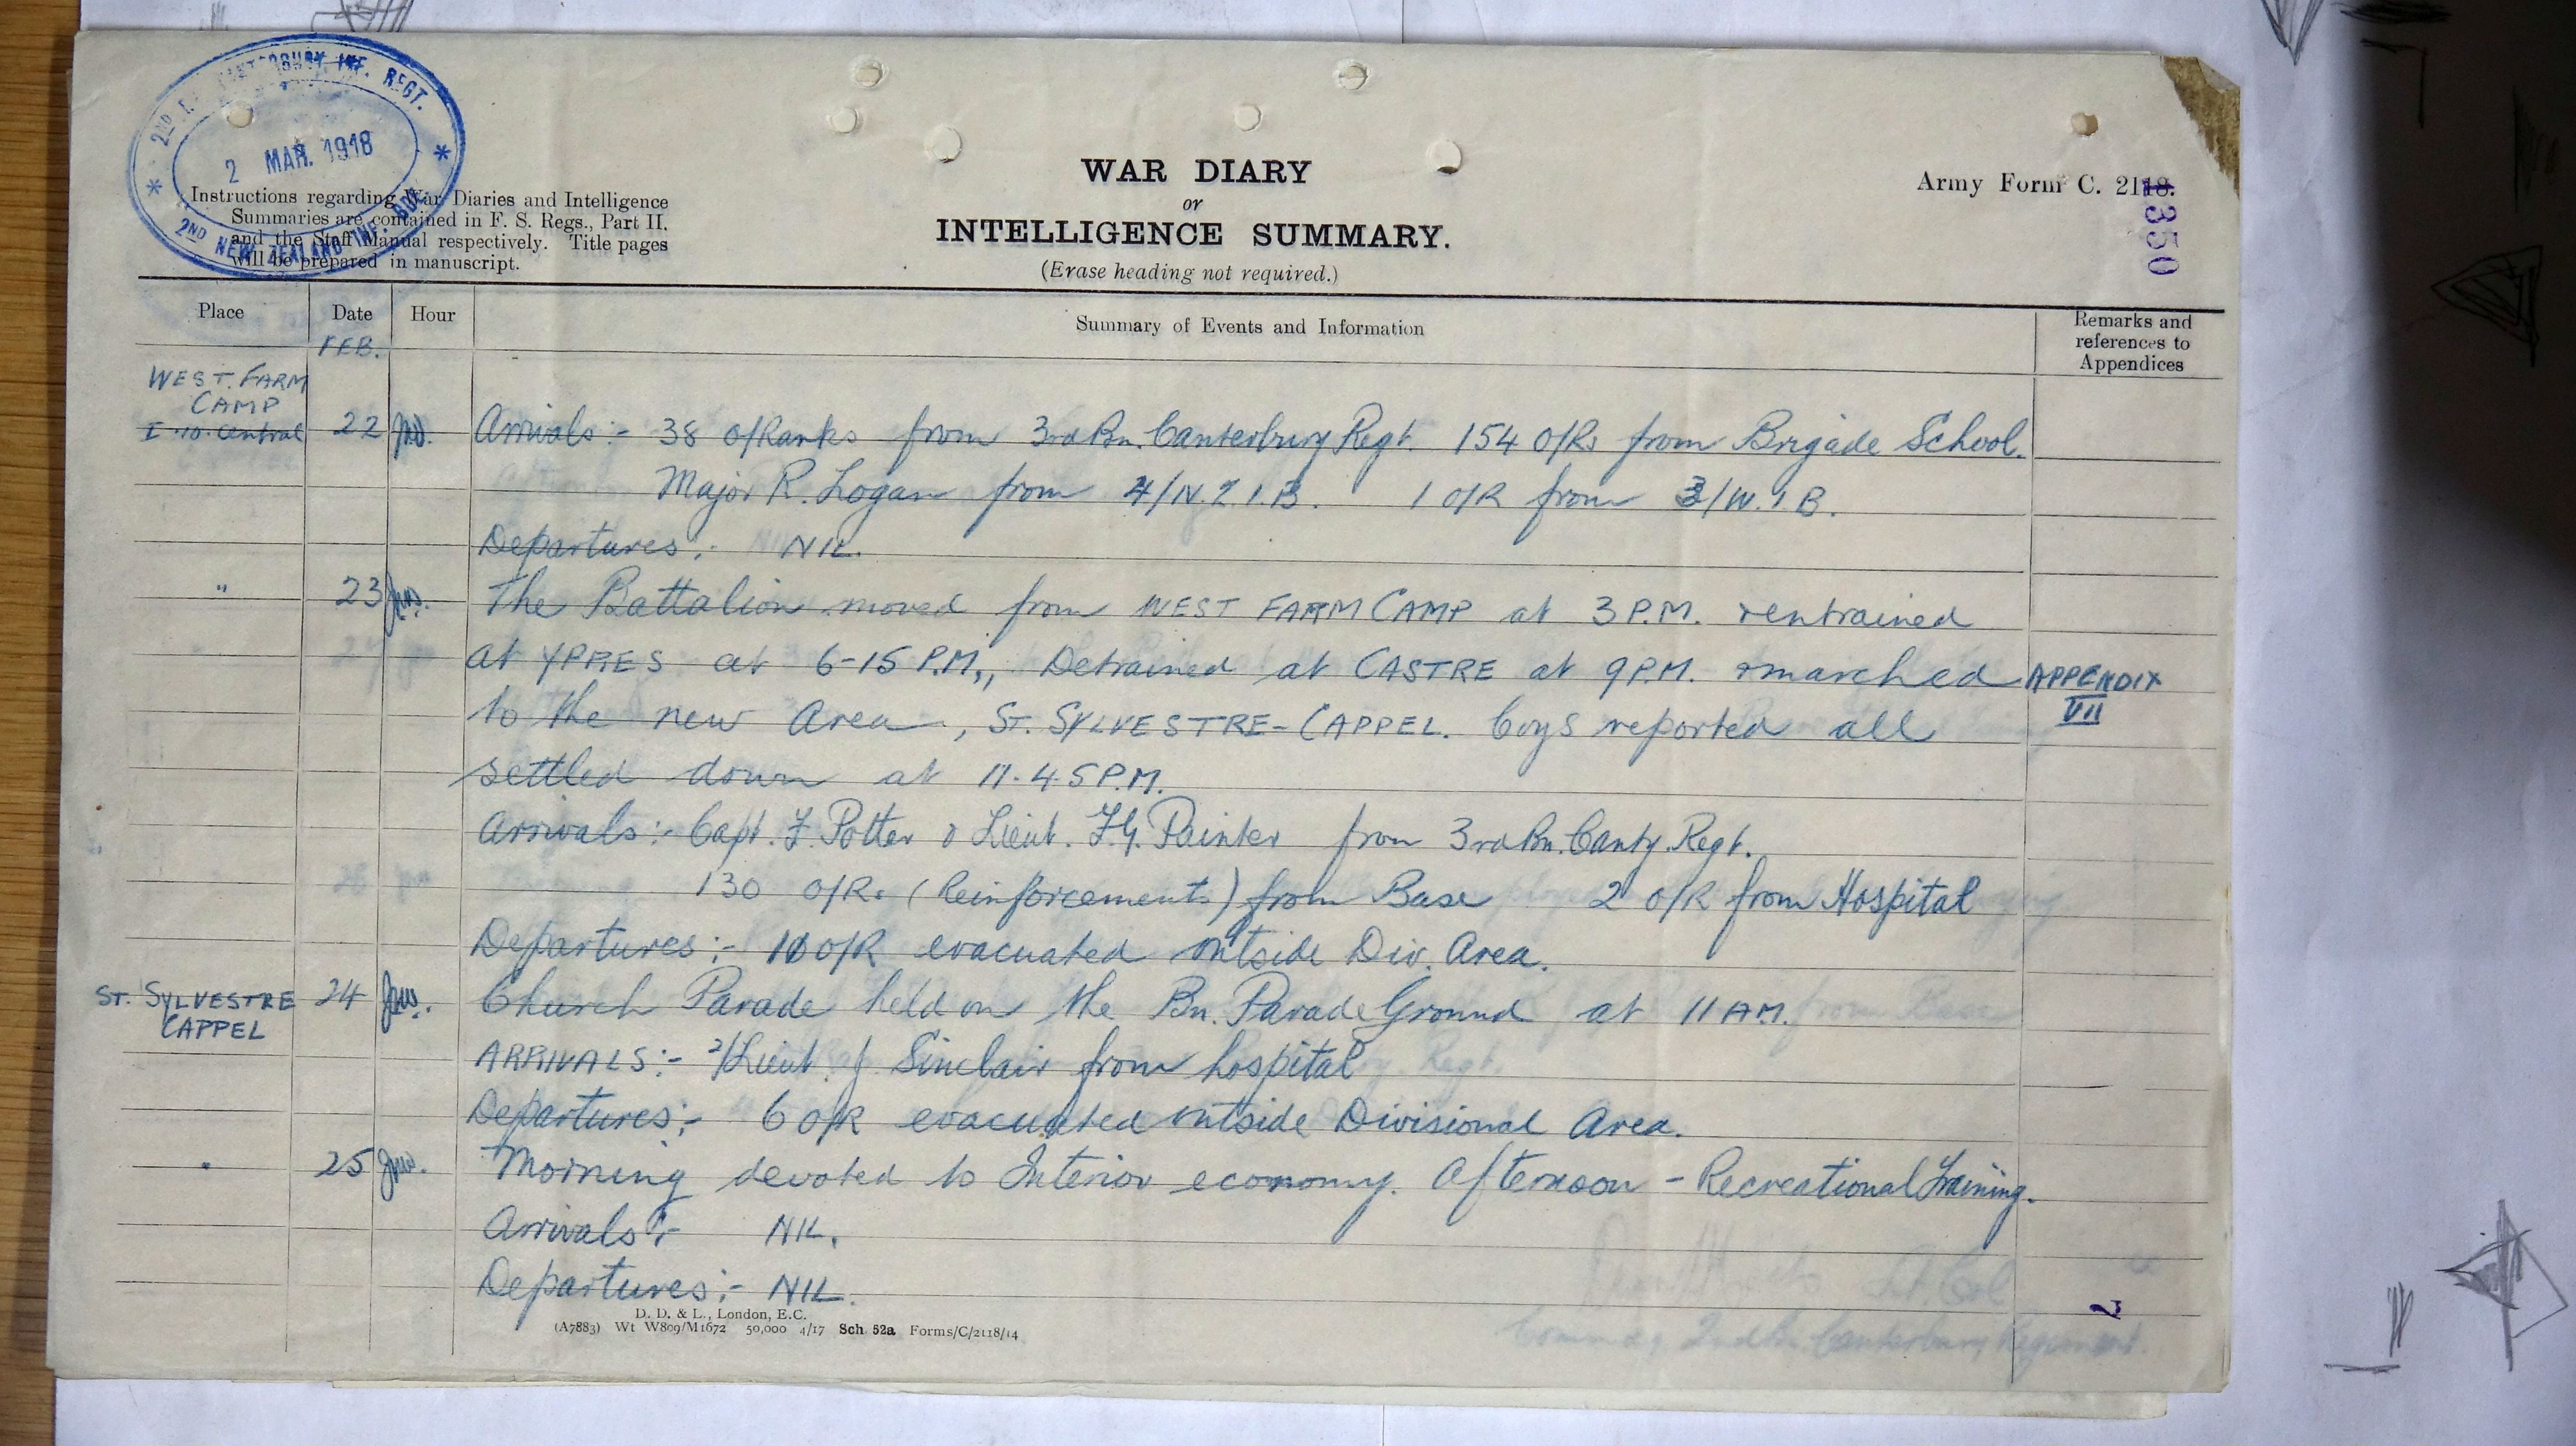 2ND BN. CANTERBURY INF. REGT.
2 MAR. 1918
2ND NEW ZEALAND INF. BDE.
Instructions regarding War Diaries and Intelligence
Summaries are contained in F. S. Regs., Part II.
and the Staff Manual respectively. Title pages
will be prepared in manuscript.
WAR DIARY
or
INTELLIGENCE SUMMARY.
(Erase heading not required.)
Army Form C. 2118.
1350
Place Date Hour Summary of Events and Information Remarks and references to Appendices
FEB.
WEST. FARM
CAMP
I.10.Central 22 Arrivals:- 38 O/Ranks from 3rd Bn. Canterbury Regt. 154 O/Rs from Brigade School.
Major R. Logan from 4/N.Z.I.B. 1 O/R from 3/W.I.B.
Departures:- NIL.
" 23 The Battalion moved from WEST FARM CAMP at 3 P.M. & entrained
at YPRES at 6-15 P.M., Detrained at CASTRE at 9 P.M. & marched APPENDIX
to the new Area, ST. SYLVESTRE-CAPPEL. Coys reported all VII
settled down at 11.45 P.M.
Arrivals:- Capt. F. Potter & Lieut. F.G. Painter from 3rd Bn. Canty. Regt.
130 O/R. (Reinforcements) from Base 2 O/R from Hospital
Departures:- 10 O/R evacuated outside Div. Area.
ST. SYLVESTRE 24 Church Parade held on the Bn. Parade Ground at 11 AM.
CAPPEL
ARRIVALS:- 2/Lieut. J Sinclair from hospital
Departures:- 6 O/R evacuated outside Divisional Area.
" 25 Morning devoted to Interior economy. Afternoon - Recreational Training.
Arrivals:- NIL.
Departures:- NIL.
D. D. & L., London, E.C.
(A7883) Wt W809/M1672 50,000 4/17 Sch 52a Forms/C/2118/14